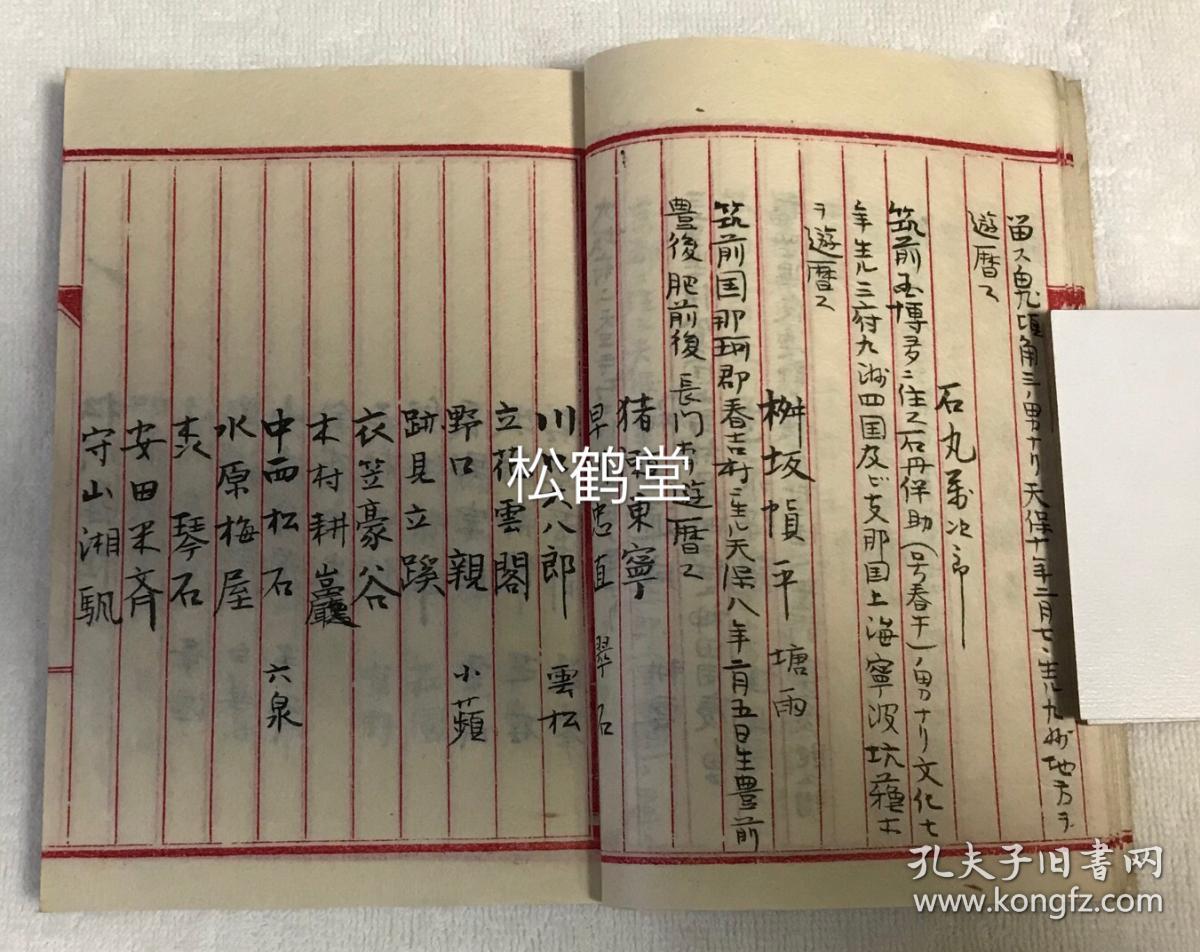 畄ス鬼頭角三ノ男ナリ天保十年二月七日生ル九州地方ヲ
遊暦ス
石丸萬次郎
筑前国博多ニ住ス石丹保助（号春干）ノ男ナリ文化七
年生ル三府九洲四国及ビ支那国上海寧波坑蘓ホ
ヲ遊暦ス
桝坂慎平 塘雨
筑前国那珂郡春吉村ニ生ル天保八年二月五日生豊前
豊後肥前後長門ホ遊暦ス
猪 東寧
早 忠直 翠石
川 八郎 雲松
立花雲閣
野口親 小蘋
跡見立蹊
衣笠豪谷
木村耕巌
中西松石 六泉
水原梅屋
琴石
安田米斉
守山湘颿
松鹤堂
孔夫子旧书网
www.kongfz.com